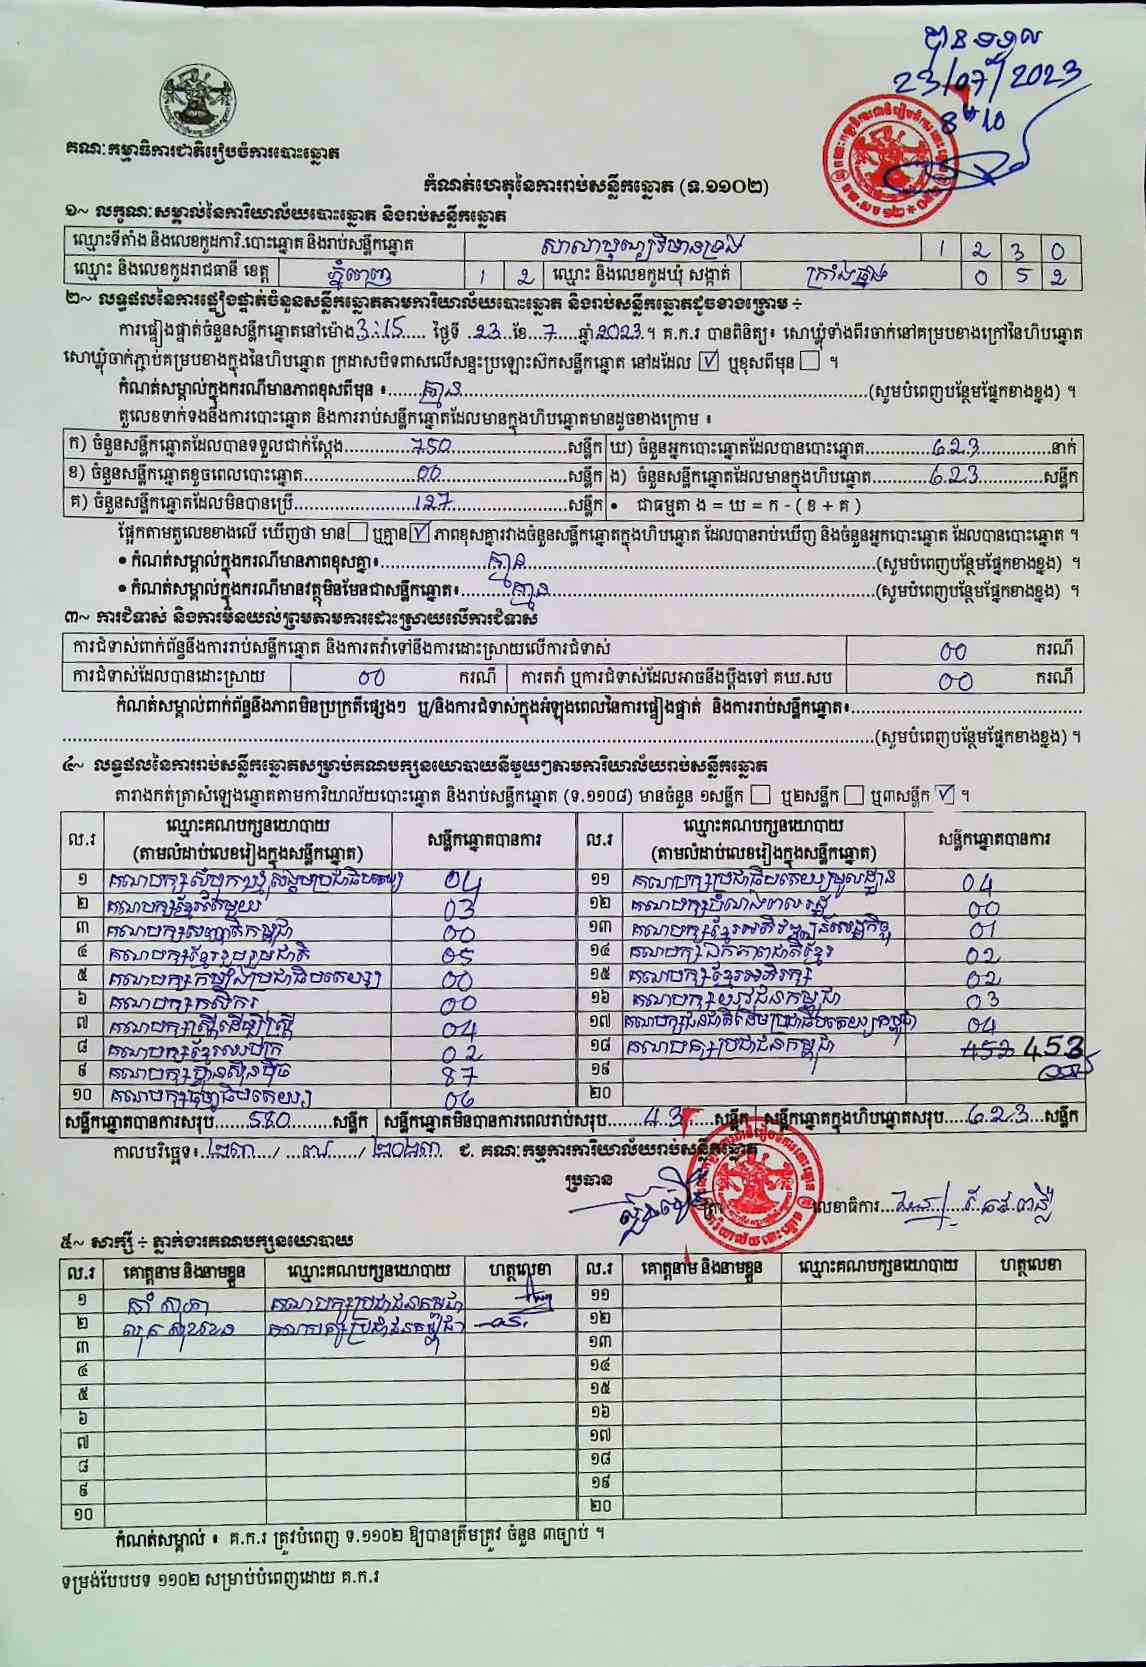 បានទទួល
23/07/2023
គណៈកម្មាធិការជាតិរៀបចំការបោះឆ្នោត
កំណត់ហេតុនៃការរាប់សន្លឹកឆ្នោត (ទ.១១០២)
១~ លក្ខណៈសម្គាល់នៃការិយាល័យបោះឆ្នោត និងរាប់សន្លឹកឆ្នោត
ឈ្មោះទីតាំង និងលេខកូដការិ.បោះឆ្នោត និងរាប់សន្លឹកឆ្នោត 1 2 3 0
ឈ្មោះ និងលេខកូដរាជធានី ខេត្ត ភ្នំពេញ 1 2 ឈ្មោះ និងលេខកូដឃុំ សង្កាត់ ក្រាំងធ្នង់ 0 5 2
២~ លទ្ធផលនៃការផ្ទៀងផ្ទាត់ចំនួនសន្លឹកឆ្នោតតាមការិយាល័យបោះឆ្នោត និងរាប់សន្លឹកឆ្នោតដូចខាងក្រោម ÷
ការផ្ទៀងផ្ទាត់ចំនួនសន្លឹកឆ្នោតនៅម៉ោង 3:15 ថ្ងៃទី 23 ខែ 7 ឆ្នាំ 2023 ។ គ.ក.រ បានពិនិត្យ៖ សោឃ្លុំទាំងពីរចាក់នៅគម្របខាងក្រៅនៃហិបឆ្នោត
សោឃ្លុំចាក់ភ្ជាប់គម្របខាងក្នុងនៃហិបឆ្នោត ក្រដាសបិទពាសលើសន្ទះប្រឡោះស៊កសន្លឹកឆ្នោត នៅដដែល ☑ ឬខុសពីមុន ☐ ។
កំណត់សម្គាល់ក្នុងករណីមានភាពខុសពីមុន ៖ គ្មាន (សូមបំពេញបន្ថែមផ្នែកខាងខ្នង) ។
តួលេខទាក់ទងនឹងការបោះឆ្នោត និងការរាប់សន្លឹកឆ្នោតដែលមានក្នុងហិបឆ្នោតមានដូចខាងក្រោម ៖
ក) ចំនួនសន្លឹកឆ្នោតដែលបានទទួលជាក់ស្តែង 750 សន្លឹក ឃ) ចំនួនអ្នកបោះឆ្នោតដែលបានបោះឆ្នោត 623 នាក់
ខ) ចំនួនសន្លឹកឆ្នោតខូចពេលបោះឆ្នោត 00 សន្លឹក ង) ចំនួនសន្លឹកឆ្នោតដែលមានក្នុងហិបឆ្នោត 623 សន្លឹក
គ) ចំនួនសន្លឹកឆ្នោតដែលមិនបានប្រើ 127 សន្លឹក • ជាធម្មតា ង = ឃ = ក - ( ខ + គ )
ផ្អែកតាមតួលេខខាងលើ ឃើញថា មាន ☐ ឬគ្មាន ☑ ភាពខុសគ្នារវាងចំនួនសន្លឹកឆ្នោតក្នុងហិបឆ្នោត ដែលបានរាប់ឃើញ និងចំនួនអ្នកបោះឆ្នោត ដែលបានបោះឆ្នោត ។
• កំណត់សម្គាល់ក្នុងករណីមានភាពខុសគ្នា៖ គ្មាន (សូមបំពេញបន្ថែមផ្នែកខាងខ្នង) ។
• កំណត់សម្គាល់ក្នុងករណីមានវត្ថុមិនមែនជាសន្លឹកឆ្នោត៖ គ្មាន (សូមបំពេញបន្ថែមផ្នែកខាងខ្នង) ។
៣~ ការជំទាស់ និងការមិនយល់ព្រមតាមការដោះស្រាយលើការជំទាស់
ការជំទាស់ពាក់ព័ន្ធនឹងការរាប់សន្លឹកឆ្នោត និងការតវ៉ាទៅនឹងការដោះស្រាយលើការជំទាស់ 00 ករណី
ការជំទាស់ដែលបានដោះស្រាយ 00 ករណី ការតវ៉ា ឬការជំទាស់ដែលអាចនឹងប្តឹងទៅ គឃ.សប 00 ករណី
កំណត់សម្គាល់ពាក់ព័ន្ធនឹងភាពមិនប្រក្រតីផ្សេងៗ ឬ/និងការជំទាស់ក្នុងអំឡុងពេលនៃការផ្ទៀងផ្ទាត់ និងការរាប់សន្លឹកឆ្នោត៖
(សូមបំពេញបន្ថែមផ្នែកខាងខ្នង) ។
៤~ លទ្ធផលនៃការរាប់សន្លឹកឆ្នោតសម្រាប់គណបក្សនយោបាយនីមួយៗតាមការិយាល័យរាប់សន្លឹកឆ្នោត
តារាងកត់ត្រាសំឡេងឆ្នោតតាមការិយាល័យបោះឆ្នោត និងរាប់សន្លឹកឆ្នោត (ទ.១១០៨) មានចំនួន ១សន្លឹក ☐ ឬ២សន្លឹក ☐ ឬ៣សន្លឹក ☑ ។
ល.រ ឈ្មោះគណបក្សនយោបាយ (តាមលំដាប់លេខរៀងក្នុងសន្លឹកឆ្នោត) សន្លឹកឆ្នោតបានការ ល.រ ឈ្មោះគណបក្សនយោបាយ (តាមលំដាប់លេខរៀងក្នុងសន្លឹកឆ្នោត) សន្លឹកឆ្នោតបានការ
១ គណបក្សសំបុកឃ្មុំសង្គមប្រជាធិបតេយ្យ 04 ១១ គណបក្សប្រជាធិបតេយ្យមូលដ្ឋាន 04
២ គណបក្សខ្មែរតែមួយ 03 ១២ គណបក្សបំណងពលរដ្ឋ 00
៣ គណបក្សសញ្ជាតិកម្ពុជា 00 ១៣ គណបក្សខ្មែរអភិវឌ្ឍន៍សេដ្ឋកិច្ច 01
៤ គណបក្សខ្មែររួបរួមជាតិ 05 ១៤ គណបក្សឯកភាពជាតិខ្មែរ 02
៥ គណបក្សកម្លាំងប្រជាធិបតេយ្យ 00 ១៥ គណបក្សខ្មែរអភិរក្ស 02
៦ គណបក្សកសិករ 00 ១៦ គណបក្សយុវជនកម្ពុជា 03
៧ គណបក្សស្ត្រីដើម្បីស្ត្រី 04 ១៧ គណបក្សជនជាតិដើមប្រជាធិបតេយ្យកម្ពុជា 04
៨ គណបក្សខ្មែរឈប់ក្រ 02 ១៨ គណបក្សប្រជាជនកម្ពុជា 453 453
៩ គណបក្សហ្វ៊ុនស៊ិនប៉ិច 87 ១៩
១០ គណបក្សធម្មាធិបតេយ្យ 06 ២០
សន្លឹកឆ្នោតបានការសរុប 580 សន្លឹក សន្លឹកឆ្នោតមិនបានការពេលរាប់សរុប 43 សន្លឹក សន្លឹកឆ្នោតក្នុងហិបឆ្នោតសរុប 623 សន្លឹក
កាលបរិច្ឆេទ៖ ២៣ / ៧ / ២០២៣ ជ. គណៈកម្មការការិយាល័យរាប់សន្លឹកឆ្នោត
ប្រធាន
លេខាធិការ
៥~ សាក្សី ÷ ភ្នាក់ងារគណបក្សនយោបាយ
ល.រ គោត្តនាម និងនាមខ្លួន ឈ្មោះគណបក្សនយោបាយ ហត្ថលេខា ល.រ គោត្តនាម និងនាមខ្លួន ឈ្មោះគណបក្សនយោបាយ ហត្ថលេខា
១ គណបក្សប្រជាជនកម្ពុជា ១១
២ គណបក្សប្រជាជនកម្ពុជា ១២
៣ ១៣
៤ ១៤
៥ ១៥
៦ ១៦
៧ ១៧
៨ ១៨
៩ ១៩
១០ ២០
កំណត់សម្គាល់ ៖ គ.ក.រ ត្រូវបំពេញ ទ.១១០២ ឱ្យបានត្រឹមត្រូវ ចំនួន ៣ច្បាប់ ។
ទម្រង់បែបបទ ១១០២ សម្រាប់បំពេញដោយ គ.ក.រ